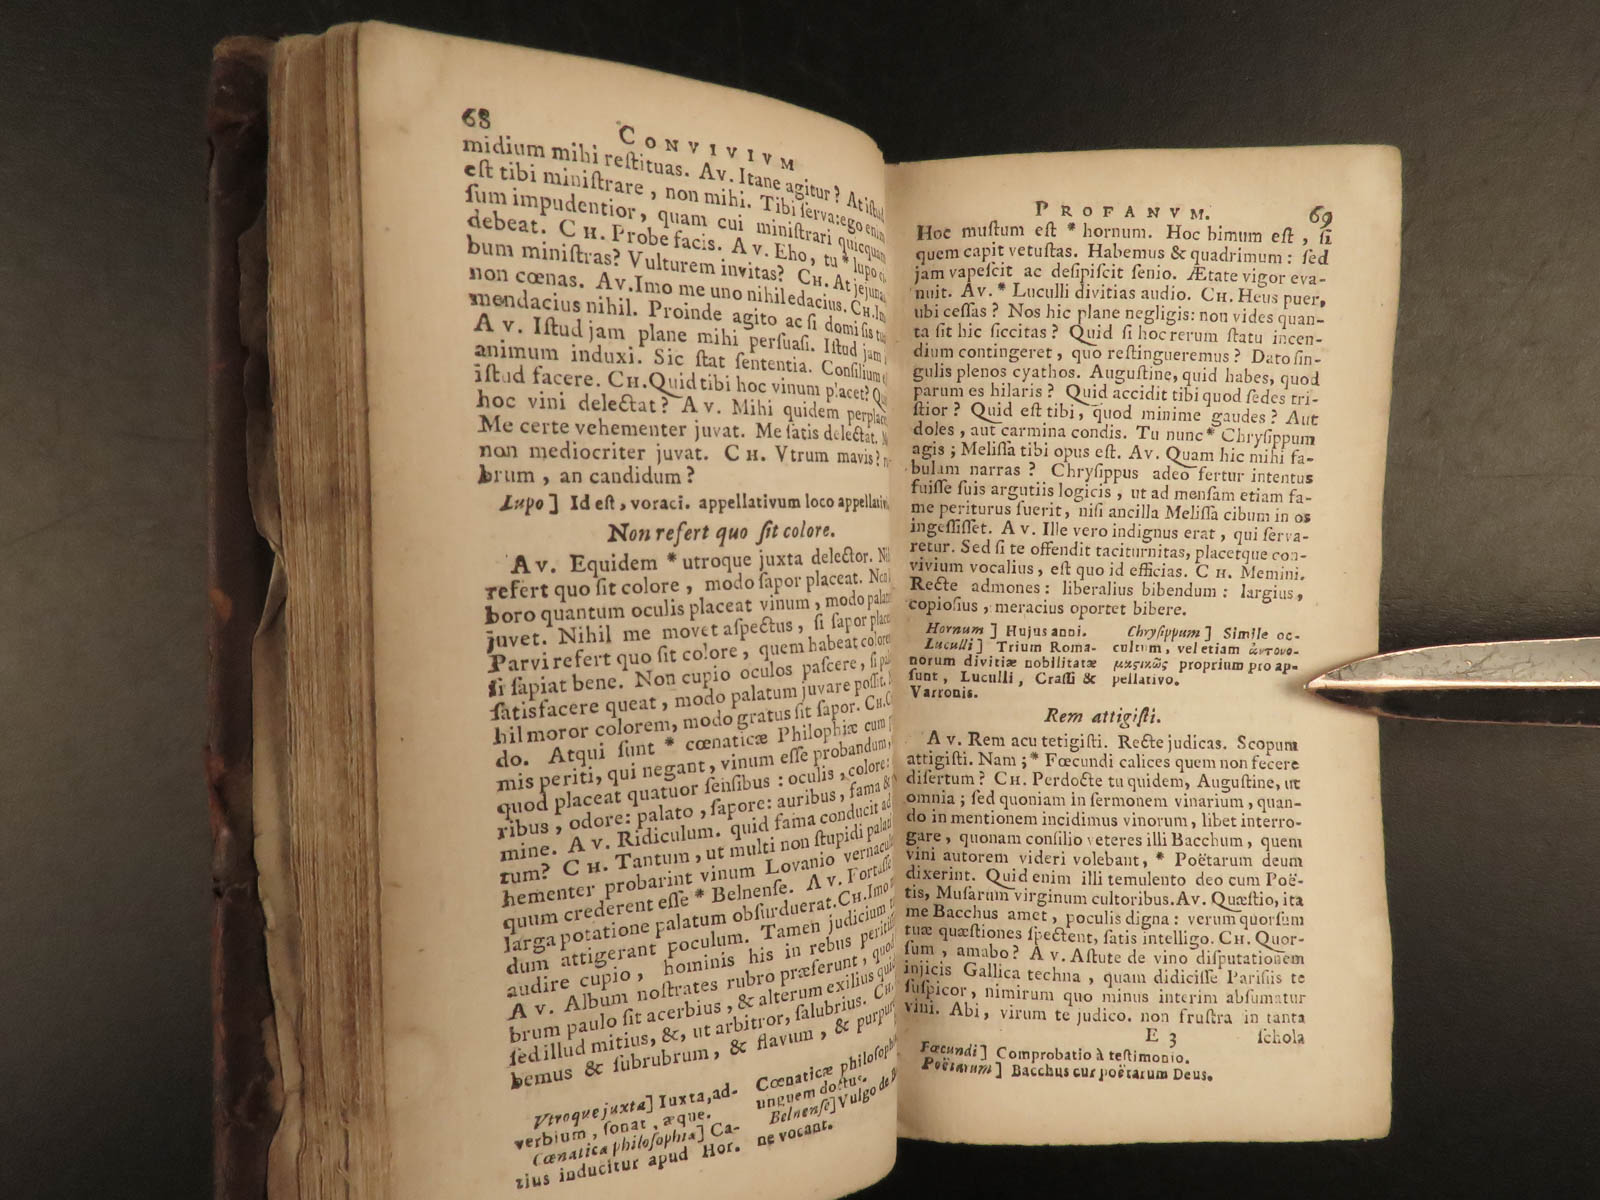 68
CONVIVIVM
midium mihi reſtituas. Av. Itane agitur? At iſtud
eſt tibi miniſtrare, non mihi. Tibi ſerva: ego enim
ſum impudentior, quam cui miniſtrari quicquam
debeat. CH. Probe facis. Av. Eho, tu * lupo
bum miniſtras? Vulturem invitas? CH. At jejunas
non cœnas. Av. Imo me uno nihil edacius. CH. Im
mendacius nihil. Proinde agito ac ſi domi ſis
Av. Iſtud jam plane mihi perſuaſi. Iſtud jam
animum induxi. Sic ſtat ſententia. Conſilium
iſtud facere. CH. Quid tibi hoc vinum placet?
hoc vini delectat? Av. Mihi quidem perplacet
Me certe vehementer juvat. Me ſatis delectat.
non mediocriter juvat. CH. Vtrum mavis?
brum, an candidum?
Lupo] Id eſt, voraci. appellativum loco appellativi
Non refert quo ſit colore.
Av. Equidem * utroque juxta delector.
refert quo ſit colore, modo ſapor placeat.
boro quantum oculis placeat vinum, modo
juvet. Nihil me movet aſpectus, ſi ſapor
Parvi refert quo ſit colore, quem habeat colorem
ſi ſapiat bene. Non cupio oculos paſcere, ſi
ſatisfacere queat, modo palatum juvare poſſit.
hil moror colorem, modo gratus ſit ſapor. CH.
do. Atqui ſunt * cœnaticæ Philophiæ cum
mis periti, qui negant, vinum eſſe probandum,
quod placeat quatuor ſenſibus: oculis, colore:
ribus, odore: palato, ſapore: auribus, fama &
mine. Av. Ridiculum. quid fama conducit ad
tum? CH. Tantum, ut multi non ſtupidi
hementer probarint vinum Lovanio
quum crederent eſſe * Belnenſe. Av. Fortaſſe
larga potatione palatum obſurduerat. CH. Imo
dum attigerant poculum. Tamen judicium
audire cupio, hominis his in rebus
Av. Album noſtrates rubro præferunt, quod
brum paulo ſit acerbius, & alterum exilius
ſed illud mitius, &, ut arbitror, ſalubrius. CH.
bemus & ſubrubrum, & flavum, &
Vtroque juxta] Iuxta, ad-
verbium, ſonat, æque.
Cœnatica philoſophia] Ca-
tius inducitur apud Hor.
Cœnaticæ
unguem doctus.
Belnenſe] Vulgo de
ne vocant.
PROFANVM.
69
Hoc muſtum eſt * hornum. Hoc bimum eſt, ſi
quem capit vetuſtas. Habemus & quadrimum: ſed
jam vapeſcit ac deſipiſcit ſenio. Ætate vigor eva-
nuit. Av. * Luculli divitias audio. CH. Heus puer,
ubi ceſſas? Nos hic plane negligis: non vides quan-
ta ſit hic ſiccitas? Quid ſi hoc rerum ſtatu incen-
dium contingeret, quo reſtingueremus? Dato ſin-
gulis plenos cyathos. Auguſtine, quid habes, quod
parum es hilaris? Quid accidit tibi quod ſedes tri-
ſtior? Quid eſt tibi, quod minime gaudes? Aut
doles, aut carmina condis. Tu nunc * Chryſippum
agis; Meliſſa tibi opus eſt. Av. Quam hic mihi fa-
bulam narras? Chryſippus adeo fertur intentus
fuiſſe ſuis argutiis logicis, ut ad menſam etiam fa-
me periturus fuerit, niſi ancilla Meliſſa cibum in os
ingeſſiſſet. Av. Ille vero indignus erat, qui ſerva-
retur. Sed ſi te offendit taciturnitas, placetque con-
vivium vocalius, eſt quo id efficias. CH. Memini.
Recte admones: liberalius bibendum: largius,
copioſius, meracius oportet bibere.
Hornum] Hujus anni.
Luculli] Trium Roma-
norum divitiæ nobilitatæ
ſunt, Luculli, Craſſi &
Varronis.
Chryſippum] Simile oc-
cultum, vel etiam ἀντονο-
μαςικῶς proprium pro ap-
pellativo.
Rem attigiſti.
Av. Rem acu tetigiſti. Recte judicas. Scopum
attigiſti. Nam; * Fœcundi calices quem non fecere
diſertum? CH. Perdocte tu quidem, Auguſtine, ut
omnia; ſed quoniam in ſermonem vinarium, quan-
do in mentionem incidimus vinorum, libet interro-
gare, quonam conſilio veteres illi Bacchum, quem
vini autorem videri volebant, * Poëtarum deum
dixerint. Quid enim illi temulento deo cum Poë-
tis, Muſarum virginum cultoribus. Av. Quæſtio, ita
me Bacchus amet, poculis digna: verum quorſum
tuæ quæſtiones ſpectent, ſatis intelligo. CH. Quor-
ſum, amabo? Av. Aſtute de vino diſputationem
injicis Gallica techna, quam didiciſſe Pariſiis te
ſuſpicor, nimirum quo minus interim abſumatur
vini. Abi, virum te judico. non fruſtra in tanta
E 3
ſchola
Fœcundi] Comprobatio à teſtimonio.
Poëtarum] Bacchus cur poëtarum Deus.